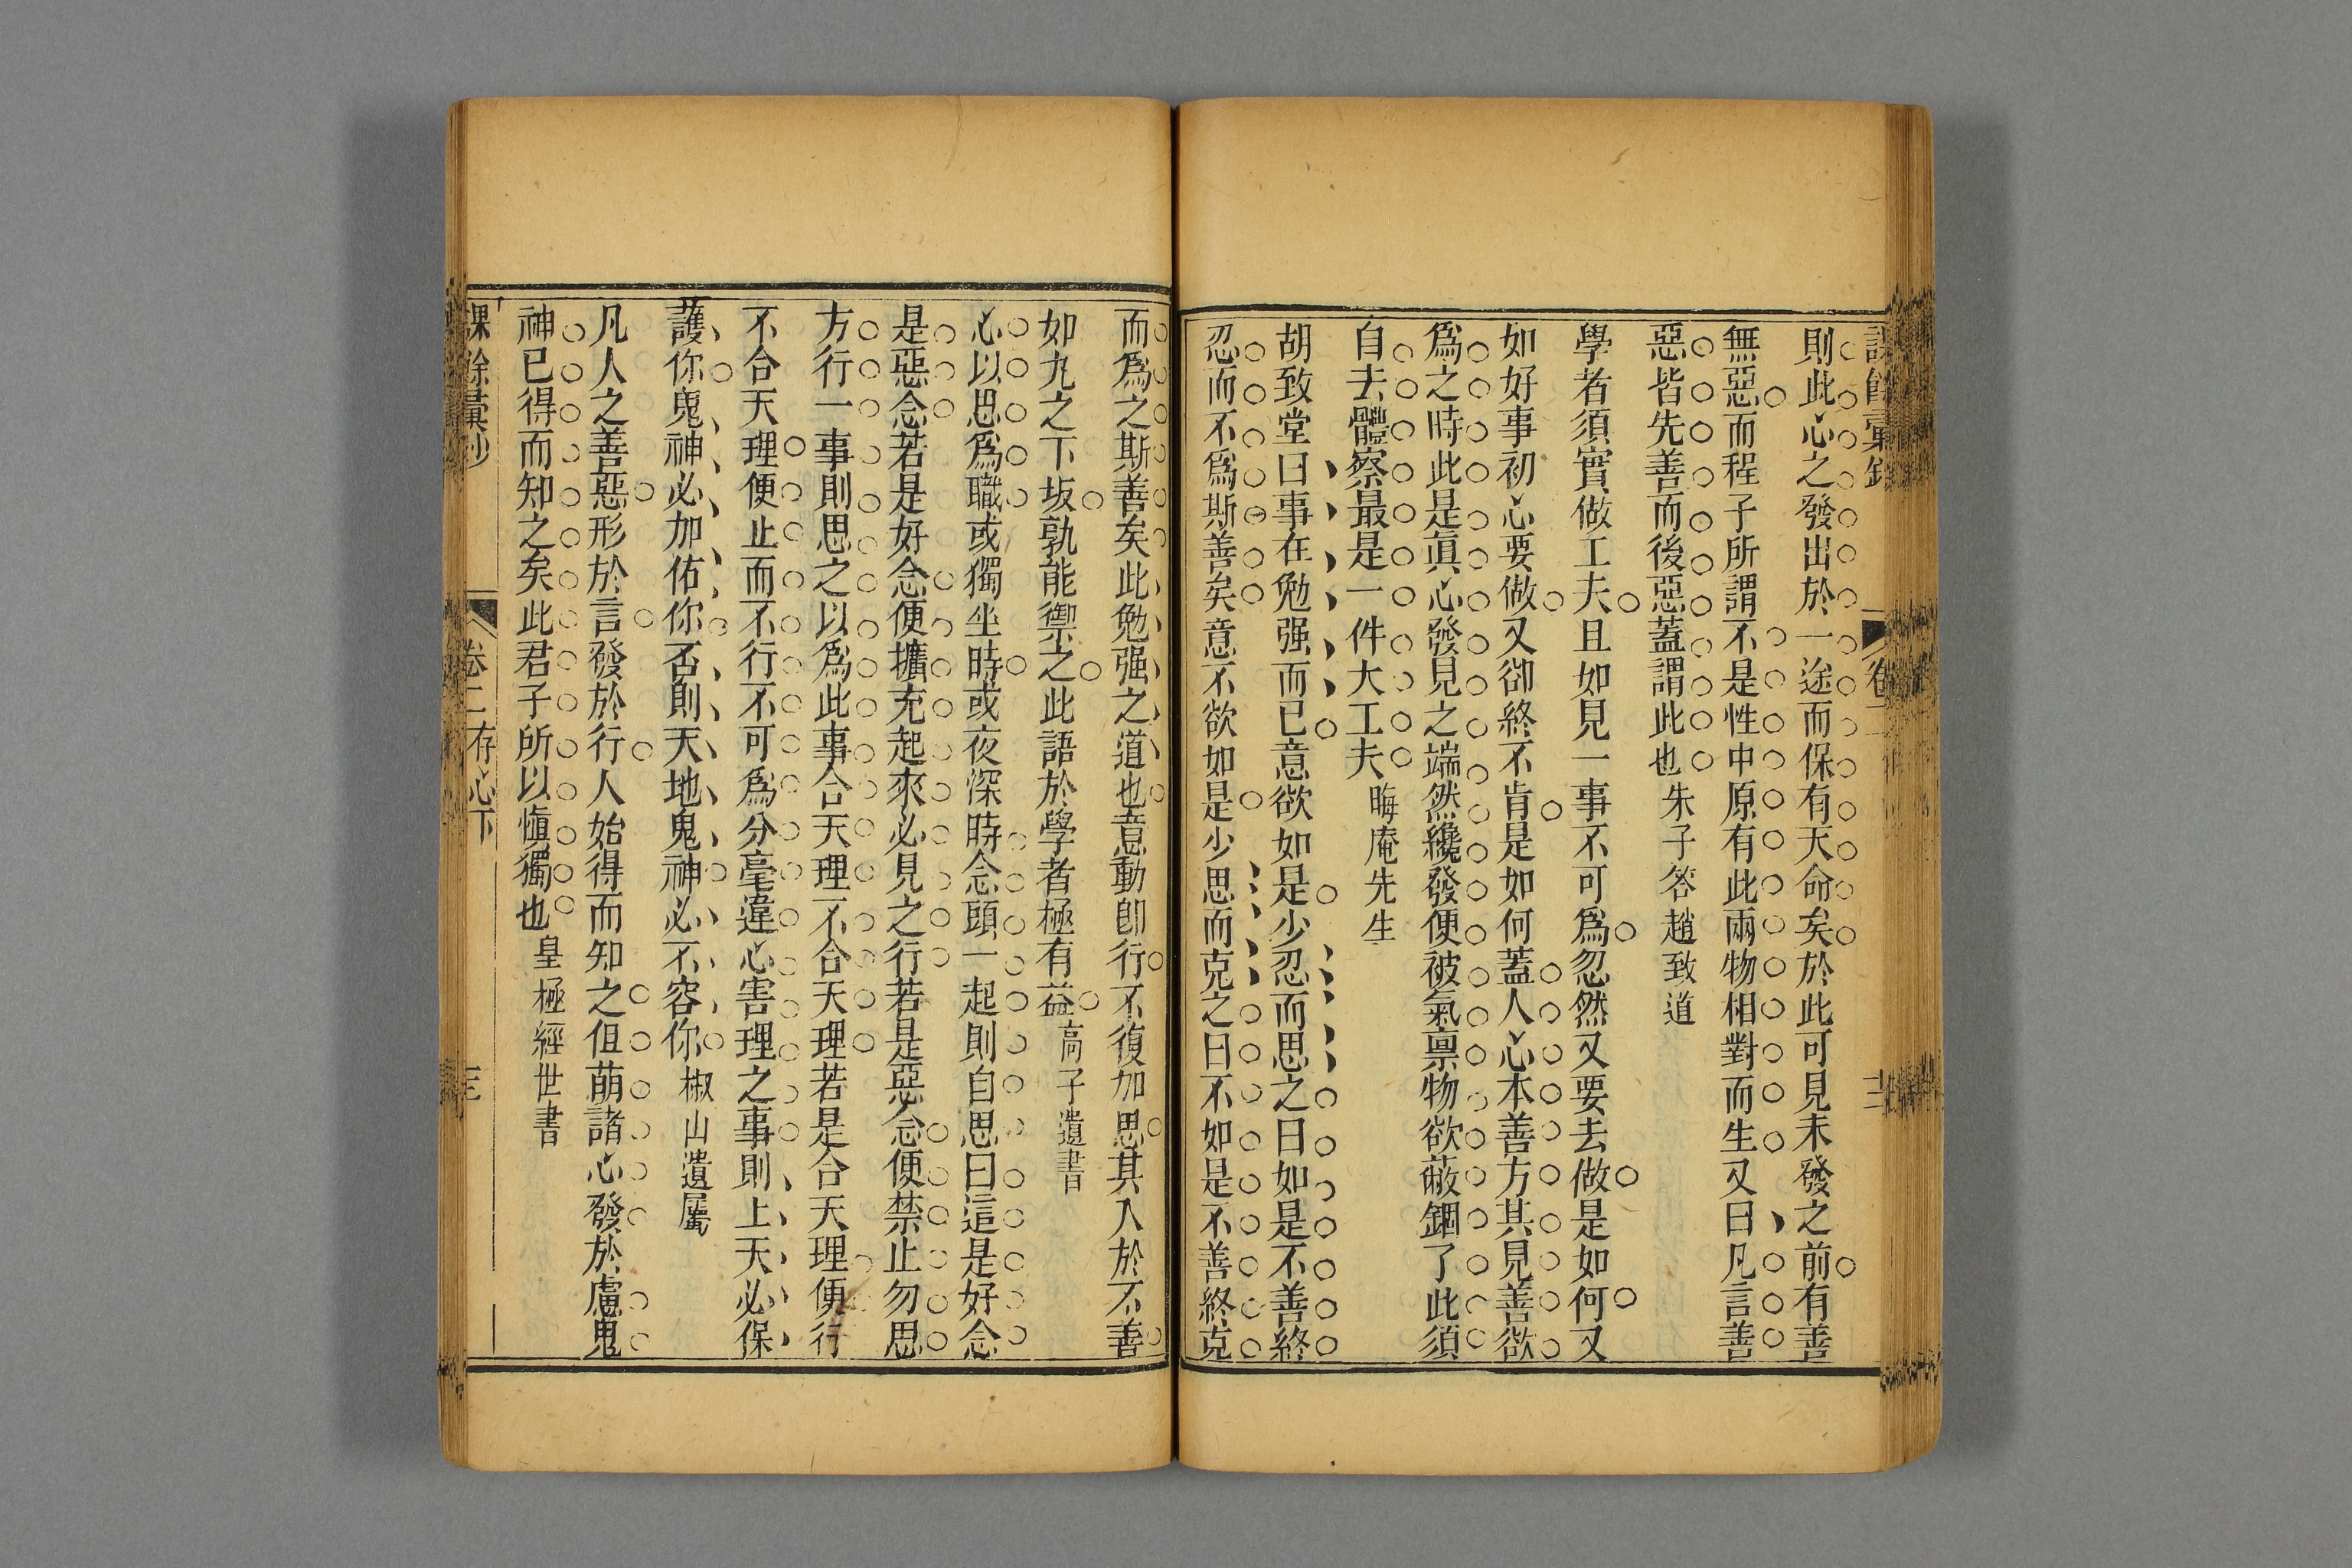 則此心之發出於一途而保有天命矣於此可見未發之前有善
無惡而程子所謂不是性中原有此兩物相對而生又曰凡言善
惡皆先善而後惡蓋謂此也朱子答趙致道
學者須實做工夫且如見一事不可爲忽然又要去做是如何又
如好事初心要做又卻終不肯是如何蓋人心本善方其見善欲
爲之時此是眞心發見之端然纔發便被氣禀物欲蔽錮了此須
自去體察最是一件大工夫晦庵先生
胡致堂曰事在勉强而已意欲如是少忍而思之曰如是不善終
忍而不爲斯善矣意不欲如是少思而克之曰不如是不善終克
而爲之斯善矣此勉强之道也意動卽行不復加思其入於不善
如九之下坂孰能禦之此語於學者極有益高子遺書
心以思爲職或獨坐時或夜深時念頭一起則自思曰這是好念
是惡念若是好念便擴充起來必見之行若是惡念便禁止勿思
方行一事則思之以爲此事合天理不合天理若是合天理便行
不合天理便止而不行不可爲分毫違心害理之事則上天必保
護你鬼神必加佑你否則天地鬼神必不容你椒山遺屬
凡人之善惡形於言發於行人始得而知之但萌諸心發於慮鬼
神已得而知之矣此君子所以愼獨也皇極經世書
課餘彙鈔 卷二存心下